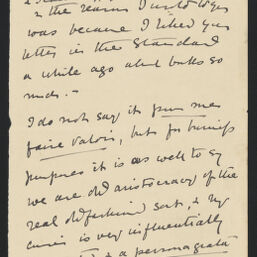 in the reason I wrote to you
was because I liked your
letter in the Standard
a while ago about books so
much. –
I do not say it pour me
faire valoir, but for business
purposes it is as well to say
we are old aristocracy of the
real old fashioned sort, & my
is very influentially
& a persona grata